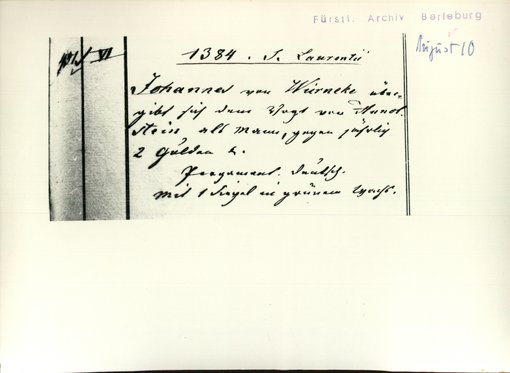 Fürstl. Archiv Berleburg
August 10
VI
1384. S. Laurentii
Johannes von Würneke über-
gibt sich dem Vogt von
stein als Mann, gegen jährlich
2 Gulden
Pergament. Deutsch.
Mit 1 Siegel in grünem Wachs.